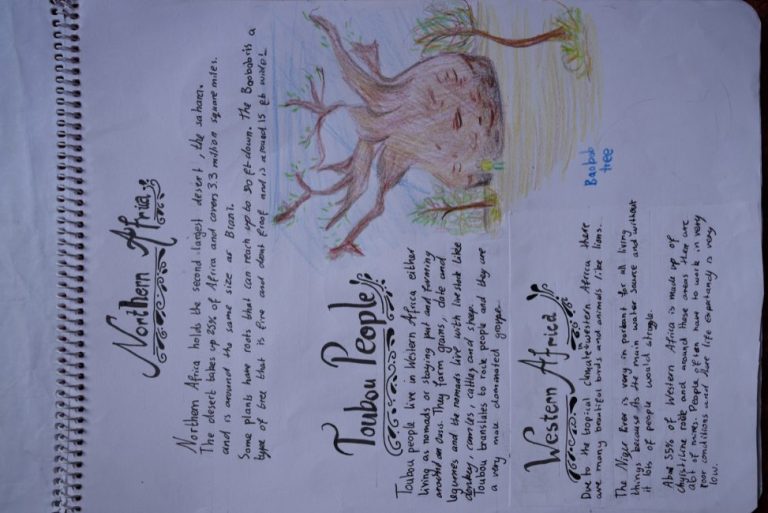 Northern Africa
Northern Africa holds the second largest desert, the sahara.
The desert takes up 25% of Africa and covers 3.3 million square miles.
and is around the same size as Brazil.
Some plants have roots that can reach up to 30 ft down. The Baobab is a
type of tree that is fire and dent proof and is around 15 ft wide!
Baobab
tree
Toubou People
Toubou people live in Western Africa either
living as nomads or staying put and farming
around an oasis. They farm grains, date and
legumes and the nomads live with livestock like
donkey, camles, cattles and sheep.
Toubou translates to rock people and they are
a very male dominated groupe.
Western Africa
Due to the tropical climate Western Africa there
are many beautiful birds and animals like lions.
The Niger River is very important for all living
things because its the main water source and without
it lots of people would strogle.
About 35% of Western Africa is made up of
rock and around those areas there are
alot of mines. People often have to work in very
poor conditions and there life expectancy is very
low.